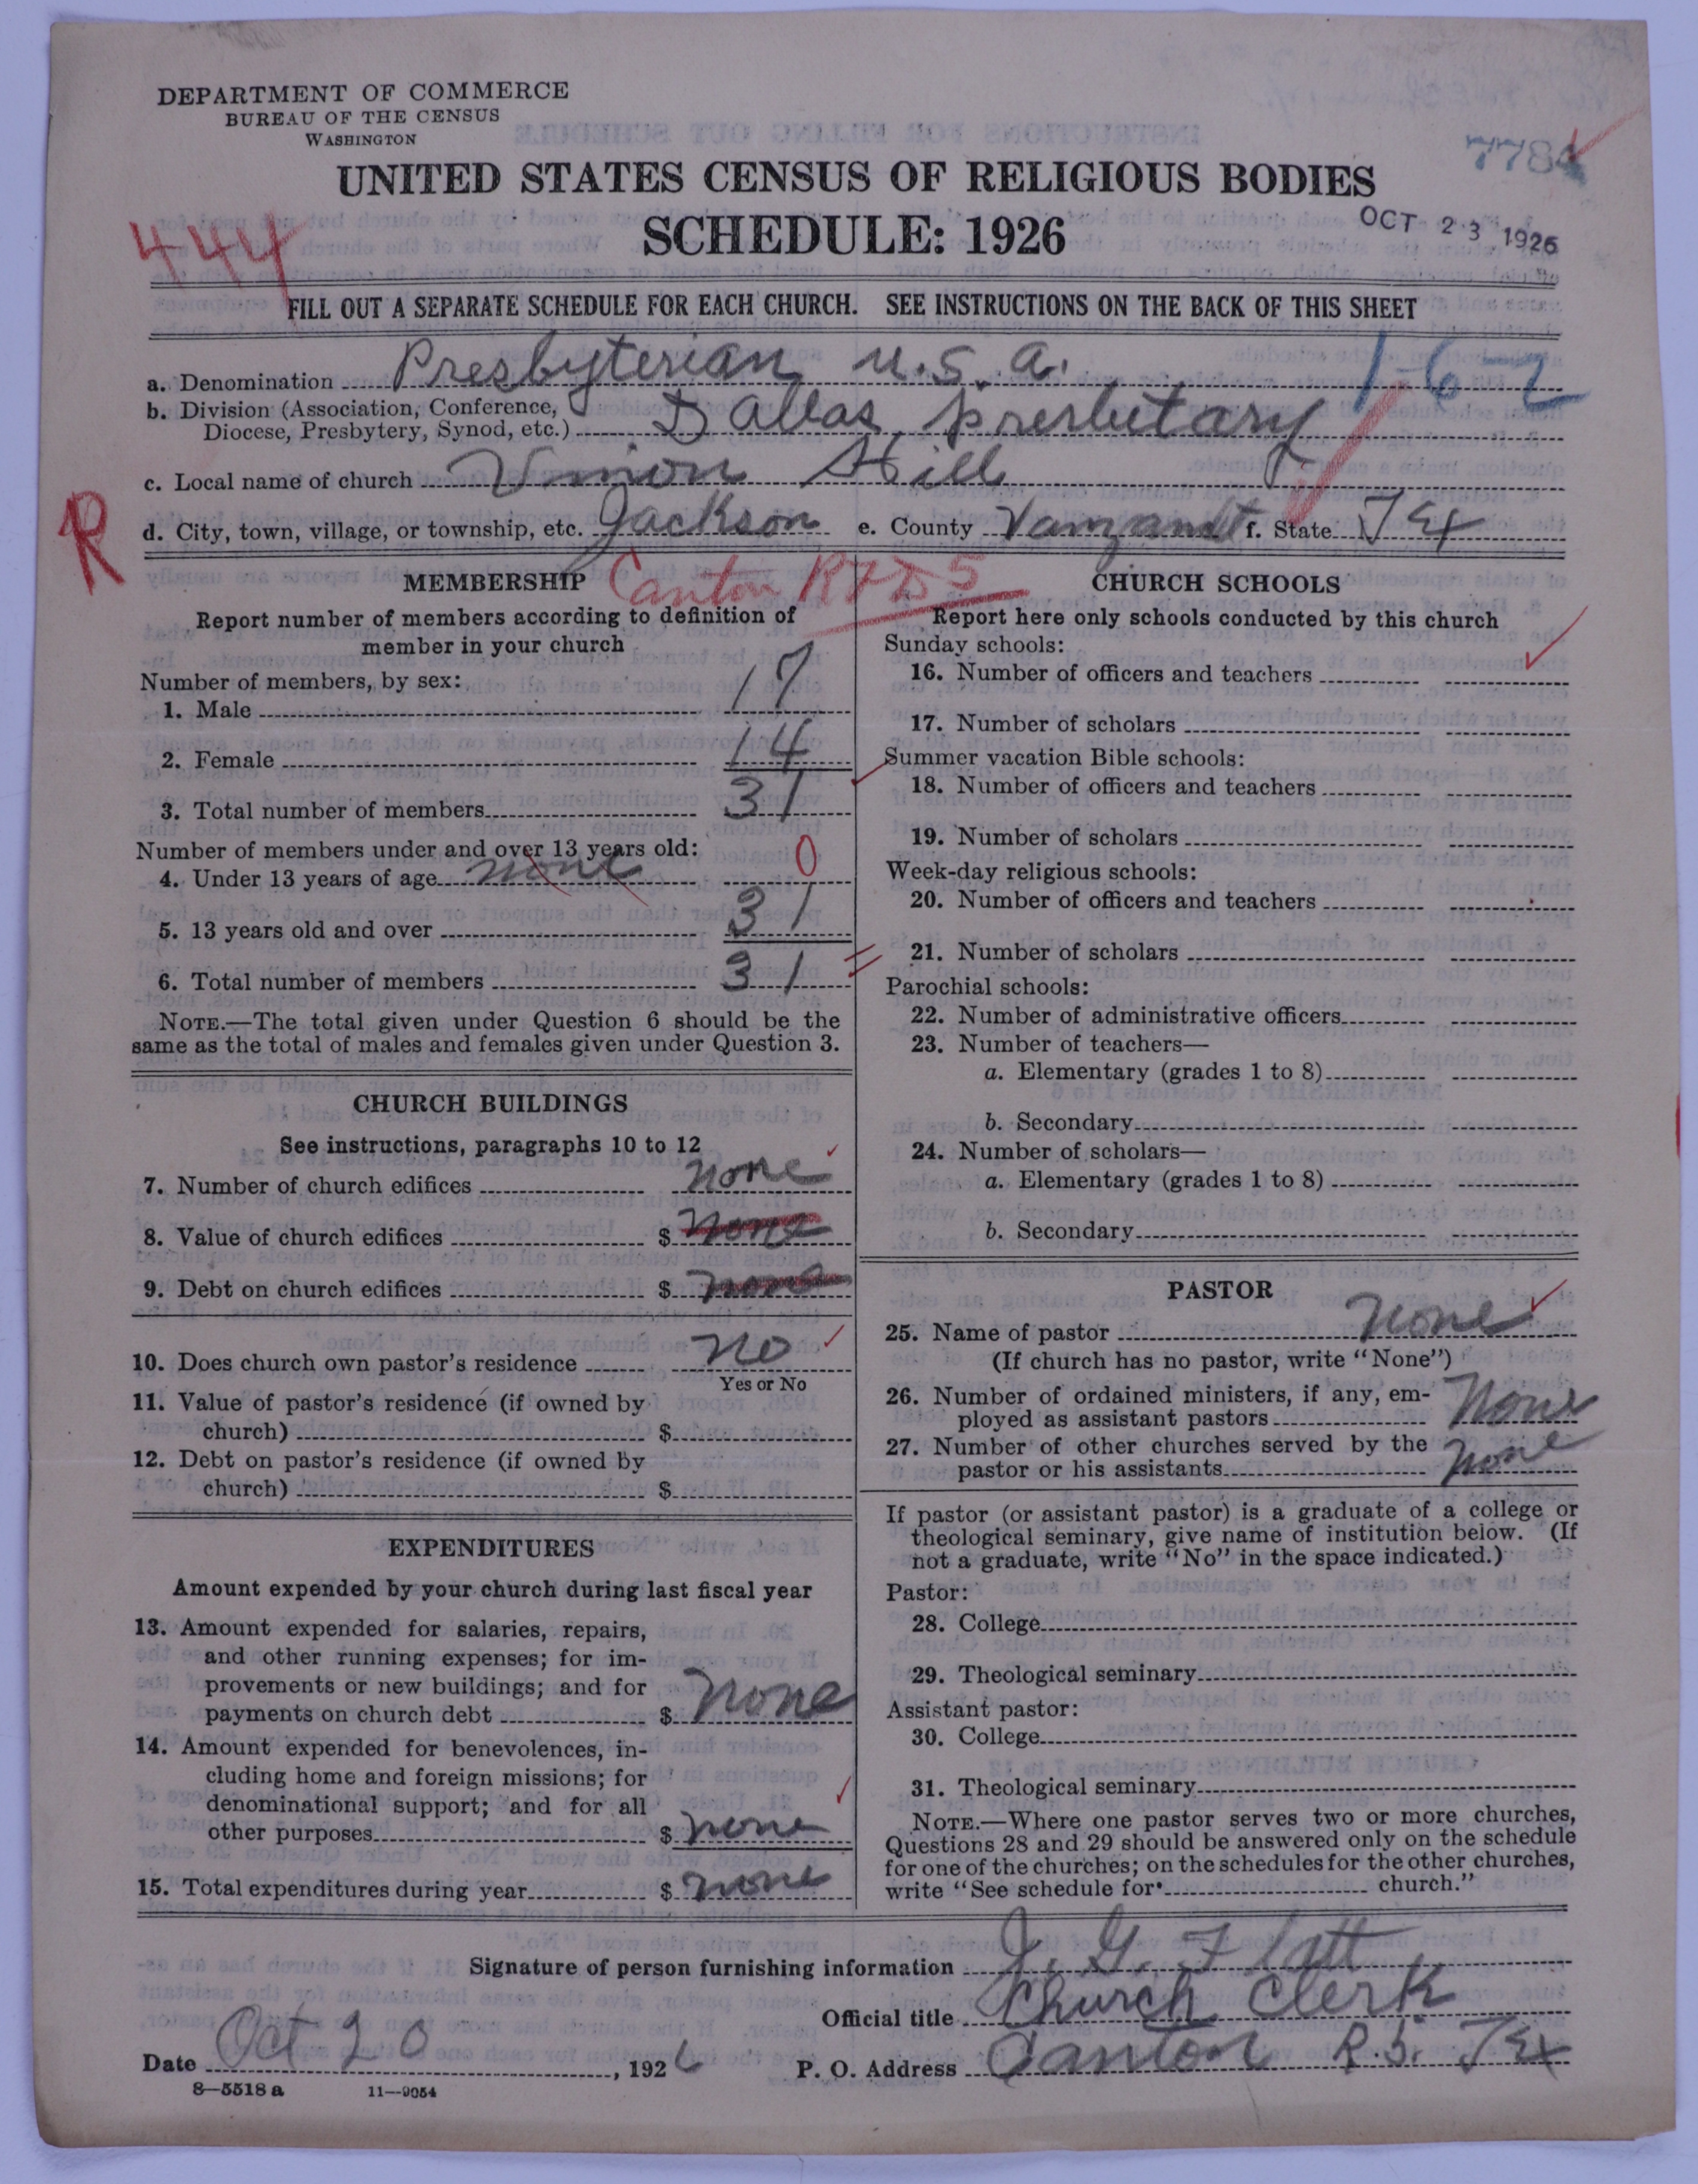 DEPARTMENT OF COMMERCE
BUREAU OF THE CENSUS
WASHINGTON
7784
UNITED STATES CENSUS OF RELIGIOUS BODIES
SCHEDULE: 1926
OCT 23 1926
444
FILL OUT A SEPARATE SCHEDULE FOR EACH CHURCH. SEE INSTRUCTIONS ON THE BACK OF THIS SHEET
a. Denomination Presbyterian U.S.A. 1-6-2
b. Division (Association, Conference, Diocese, Presbytery, Synod, etc.) Dallas presbutary
c. Local name of church Union Hill
R
d. City, town, village, or township, etc. Jackson e. County Vanzandt f. State Tex
MEMBERSHIP Canton RFD 5
Report number of members according to definition of
member in your church
Number of members, by sex:
1. Male 17
2. Female 14
3. Total number of members 31
Number of members under and over 13 years old:
4. Under 13 years of age none 0
5. 13 years old and over 31
6. Total number of members 31
NOTE.—The total given under Question 6 should be the
same as the total of males and females given under Question 3.
CHURCH BUILDINGS
See instructions, paragraphs 10 to 12
7. Number of church edifices none
8. Value of church edifices $ none
9. Debt on church edifices $ none
10. Does church own pastor's residence no
Yes or No
11. Value of pastor's residence (if owned by
church) $
12. Debt on pastor's residence (if owned by
church) $
EXPENDITURES
Amount expended by your church during last fiscal year
13. Amount expended for salaries, repairs,
and other running expenses; for im-
provements or new buildings; and for
payments on church debt $ none
14. Amount expended for benevolences, in-
cluding home and foreign missions; for
denominational support; and for all
other purposes $ none
15. Total expenditures during year $ none
CHURCH SCHOOLS
Report here only schools conducted by this church
Sunday schools:
16. Number of officers and teachers
17. Number of scholars
Summer vacation Bible schools:
18. Number of officers and teachers
19. Number of scholars
Week-day religious schools:
20. Number of officers and teachers
21. Number of scholars
Parochial schools:
22. Number of administrative officers
23. Number of teachers—
a. Elementary (grades 1 to 8)
b. Secondary
24. Number of scholars—
a. Elementary (grades 1 to 8)
b. Secondary
PASTOR
25. Name of pastor none
(If church has no pastor, write "None")
26. Number of ordained ministers, if any, em-
ployed as assistant pastors None
27. Number of other churches served by the
pastor or his assistants none
If pastor (or assistant pastor) is a graduate of a college or
theological seminary, give name of institution below. (If
not a graduate, write "No" in the space indicated.)
Pastor:
28. College
29. Theological seminary
Assistant pastor:
30. College
31. Theological seminary
NOTE.—Where one pastor serves two or more churches,
Questions 28 and 29 should be answered only on the schedule
for one of the churches; on the schedules for the other churches,
write "See schedule for church."
Signature of person furnishing information J. G. Flatt
Official title Church Clerk
Date Oct 20, 1926 P. O. Address Canton R.5. Tex
8—5518 a 11—9054